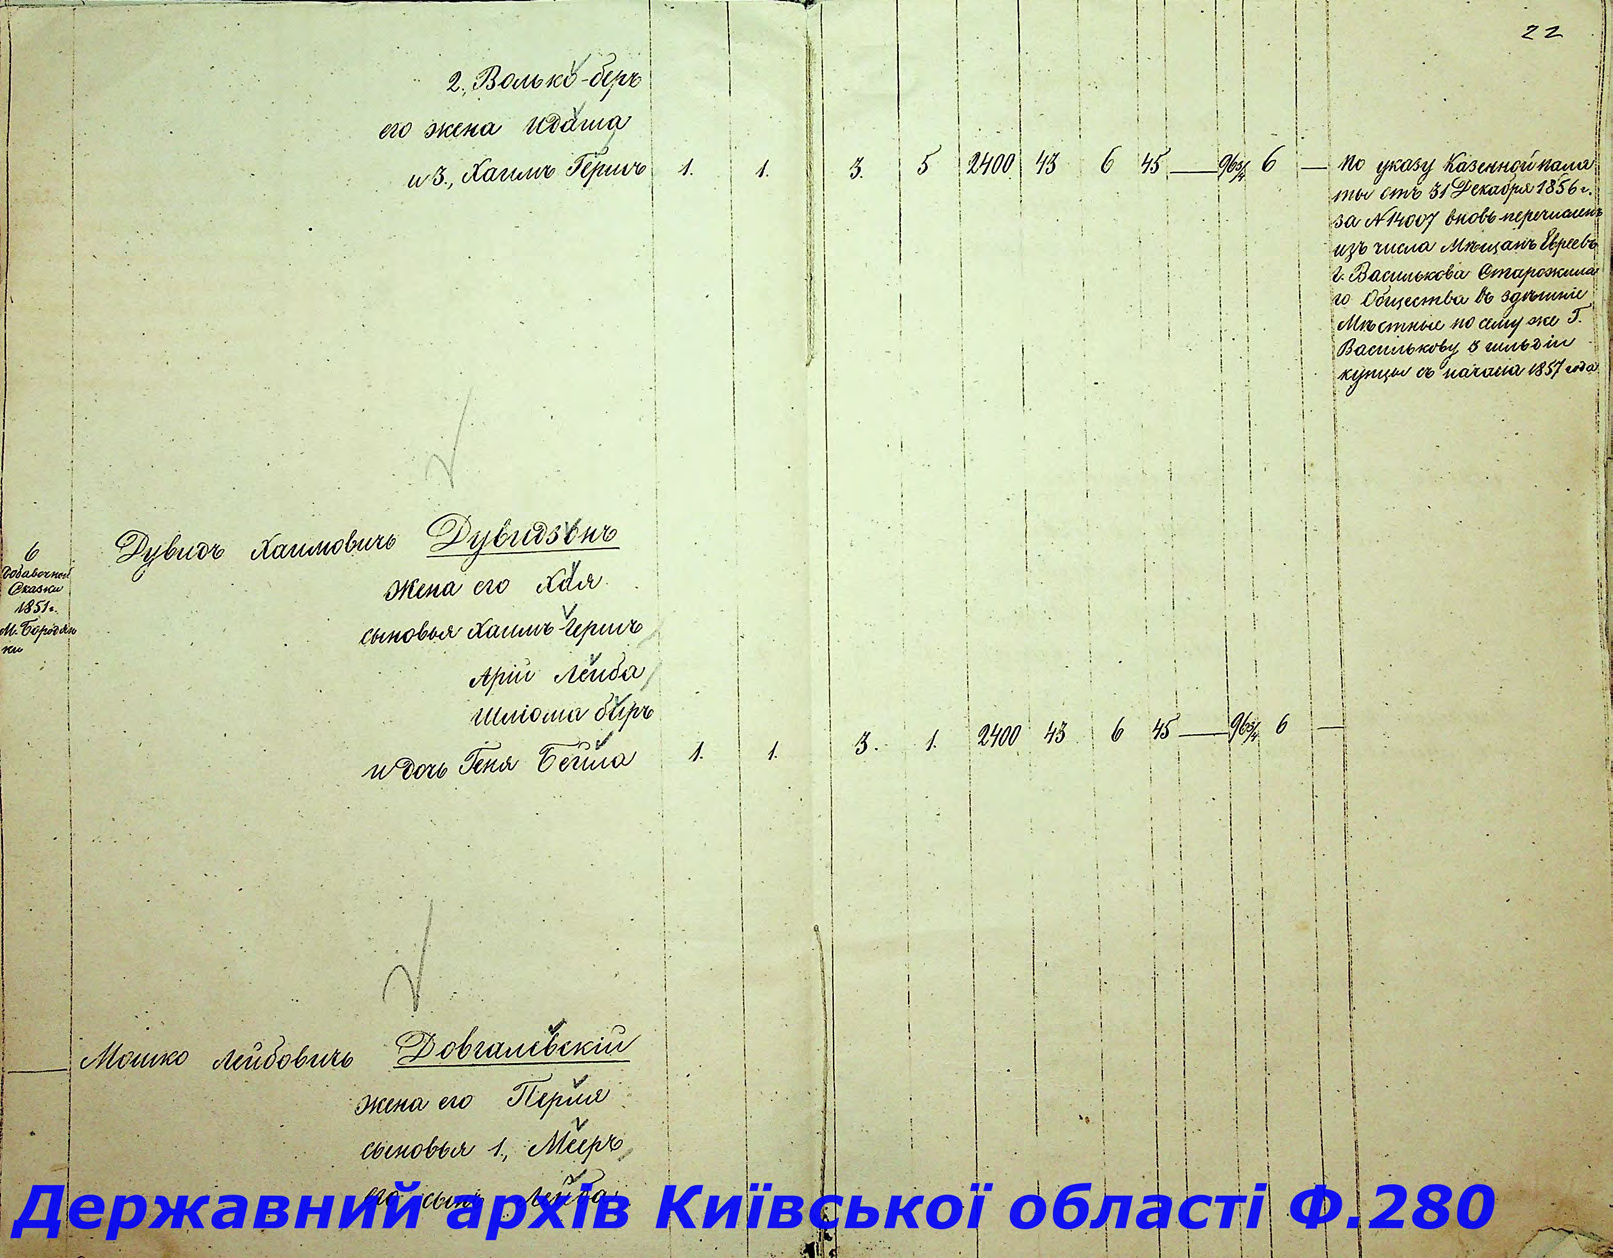 22
2., Волько-беръ
его жена Идаша
и 3., Хаимъ Гершъ 1. 1. 3. 5 2400 43 6 45 — 96¾ 6 —
По указу Казенной пала
ты отъ 31 Декабря 1856 г.
за № 14007 вновь перечисленъ
изъ числа Мѣщанъ Евреевъ
г. Василькова Старожила
го Общества въ здѣшніе
Мѣстные по сему же Г.
Василькову 3 гильдіи
купцы съ начала 1857 года
6
Добавочной
Сказки
1851 г.
М. Бородян
ки
Дувидъ Хаимовичъ Дувидзонъ
жена его Хая
сыновья Хаимъ-Гершъ
Арій Лейба
Шліома биръ
и дочь Геня Бейла 1. 1. 3. 1. 2400 43 6 45 — 96¾ 6 —
— Мошко Лейбовичъ Довгалевскій
жена его Перля
сыновья 1., Мееръ
его сынъ Лейба
Державний архів Київської області Ф.280